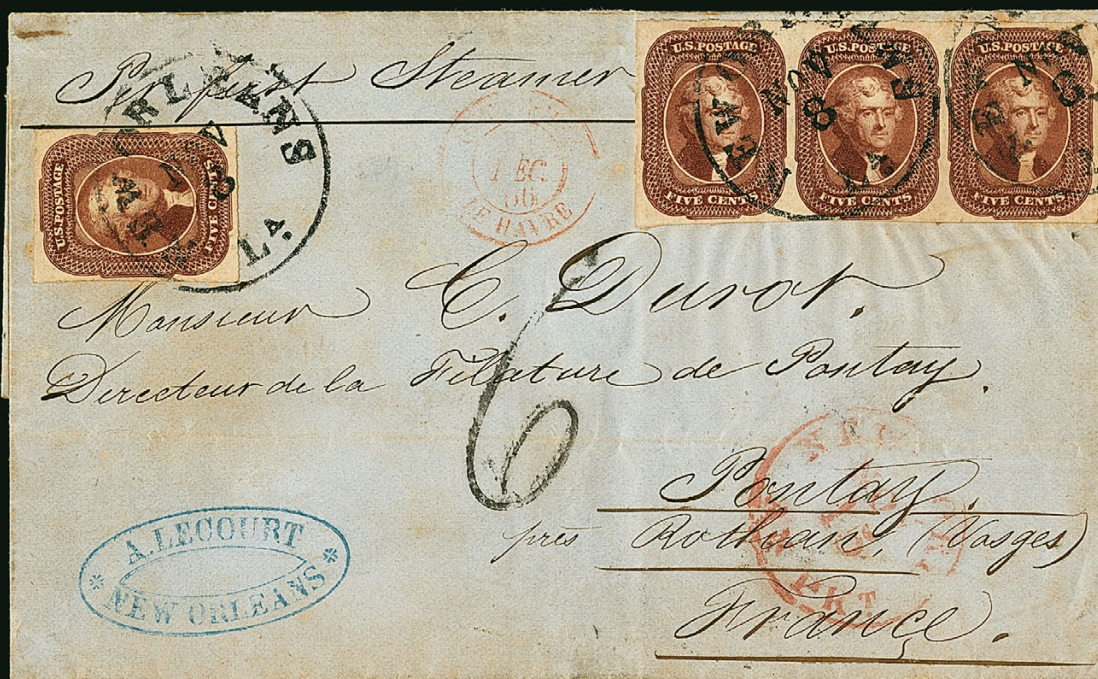 Per first Steamer
U.S. POSTAGE
FIVE CENTS
U.S. POSTAGE
FIVE CENTS
U.S. POSTAGE
FIVE CENTS
U.S. POSTAGE
FIVE CENTS
ORLEANS
LA.
NOV
8
DEC.
56
LE HAVRE
6
Monsieur C. Durot.
Directeur de la Filature de Pontay.
Pontay,
près Rothean, (Vosges)
France.
NEW
PKT.
A. LECOURT
NEW ORLEANS